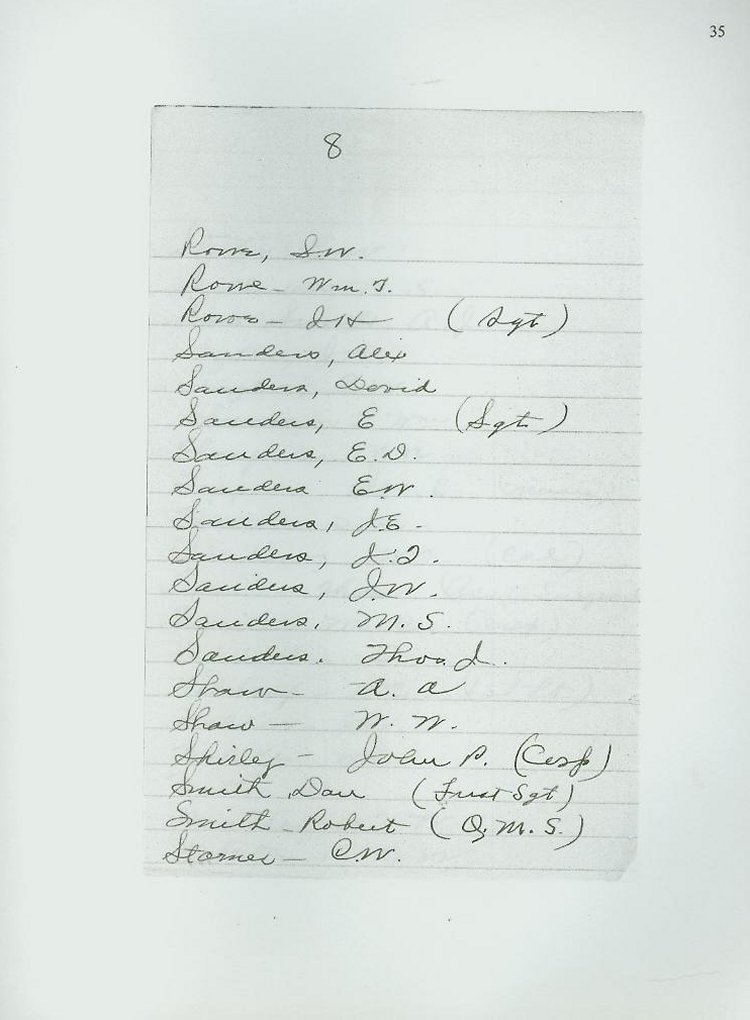 35
8
Rowe, S.W.
Rowe - Wm. T.
Rowe - J H (Sgt)
Sanders, Alex
Sanders, David
Sanders, E (Sgt)
Sanders, E.D.
Sanders E.W.
Sanders, J.E.
Sanders, J.T.
Sanders, J.W.
Sanders, M.S.
Sanders. Thos. J.
Shaw - A. A
Shaw - W. W.
Shirley - John P. (Corp)
Smith Dan (First Sgt)
Smith - Robert (Q.M.S.)
- C.W.